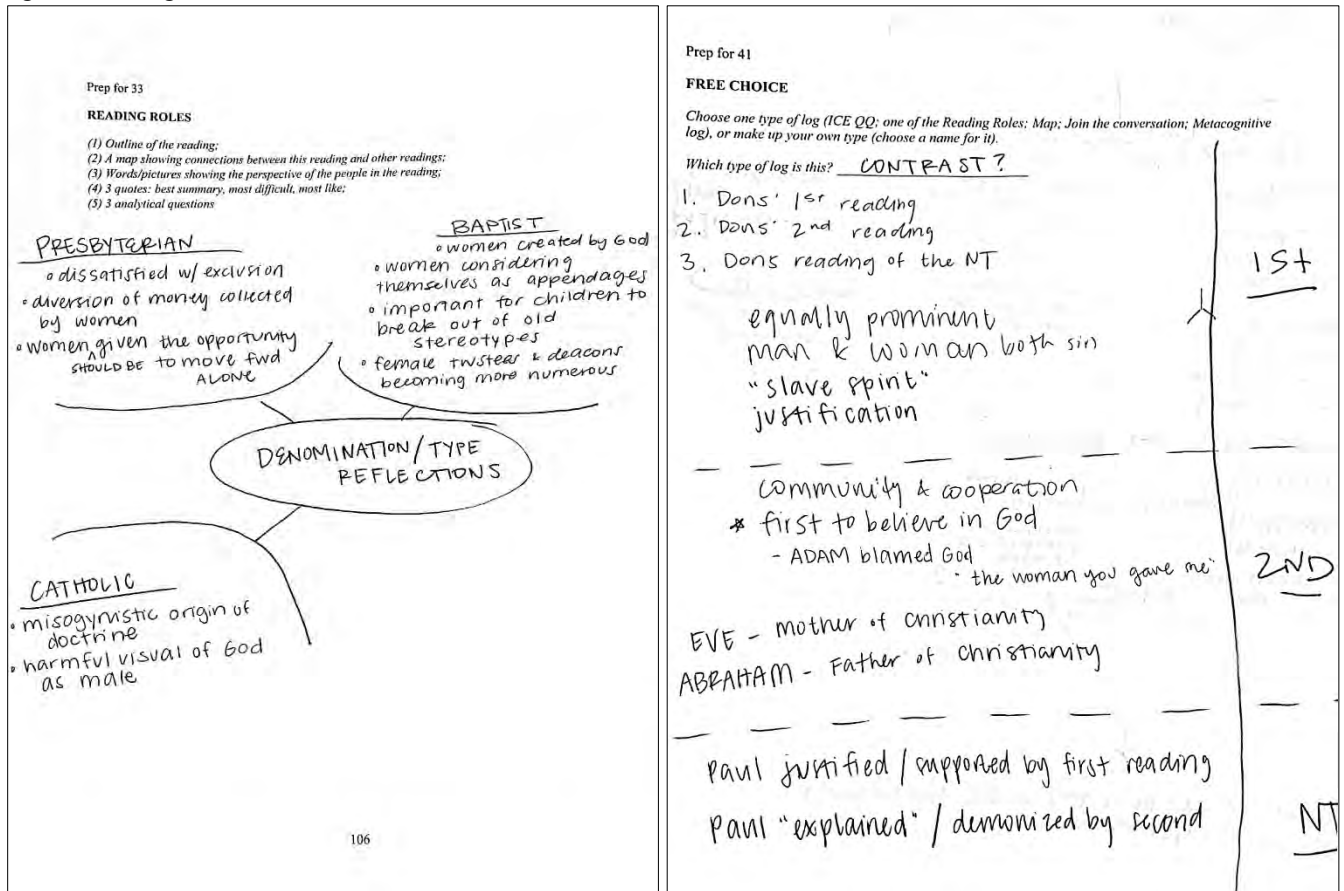 Prep for 33
READING ROLES
(1) Outline of the reading;
(2) A map showing connections between this reading and other readings;
(3) Words/pictures showing the perspective of the people in the reading;
(4) 3 quotes: best summary, most difficult, most like;
(5) 3 analytical questions
PRESBYTERIAN
• dissatisfied w/ exclusion
• diversion of money collected
by women
• women given the opportunity
SHOULD BE to move fwd
ALONE
BAPTIST
• women created by God
• women considering
themselves as appendages
• important for children to
break out of old
stereotypes
• female trustees & deacons
becoming more numerous
DENOMINATION/TYPE
REFLECTIONS
CATHOLIC
• misogynistic origin of
doctrine
• harmful visual of God
as male
106
Prep for 41
FREE CHOICE
Choose one type of log (ICE QQ; one of the Reading Roles; Map; Join the conversation; Metacognitive
log), or make up your own type (choose a name for it).
Which type of log is this? CONTRAST?
1. Dons' 1st reading
2. Dons' 2nd reading
3. Dons reading of the NT
equally prominent
man & woman both sin
"slave spirit"
justification
1St
community & cooperation
* first to believe in God
- ADAM blamed God
"the woman you gave me"
2ND
EVE - mother of Christianity
ABRAHAM - Father of Christianity
Paul justified / supported by first reading
Paul "explained" / demonized by second
NT